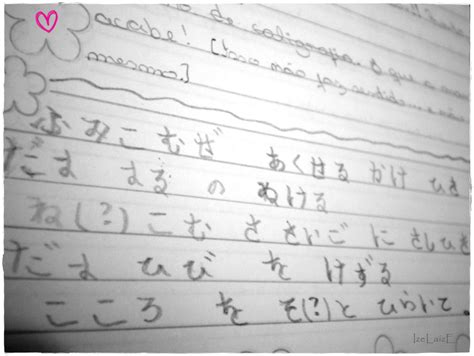 de caligrafia. O que a
acabe! [Isso não faz sentido... e não
mesmo.]
ふみこむぜ あくせる かけ ひき
だよ よる の ぬける
ね(?)こむ さ さいご に さしひき
だよ ひび を けずる
こころ を そ(?)と ひらいて。
IzeLaizE